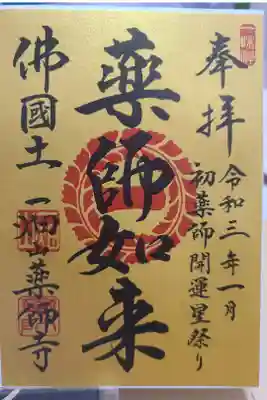 奉拝
令和三年一月
初薬師開運星祭り
藥師如来
佛國土一畑山薬師寺